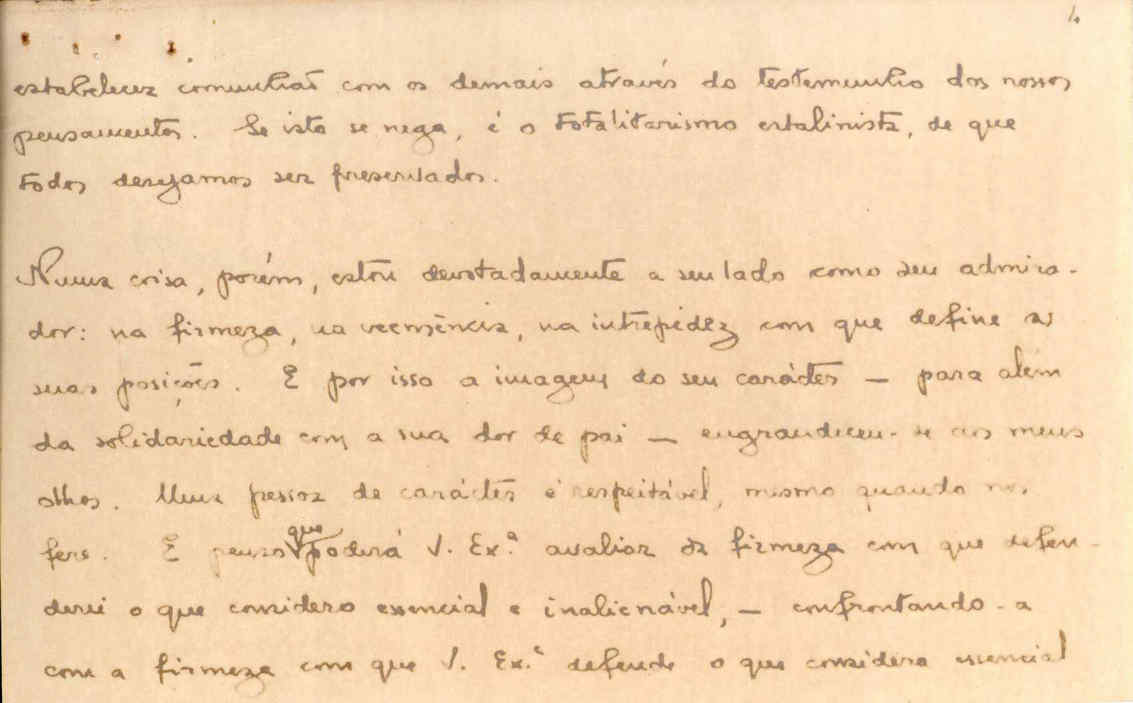 4
estabelecer comunhão com os demais através do testemunho dos nossos
pensamentos. Se isto se nega, é o totalitarismo estalinista, de que
todos desejamos ser preservados.
Numa coisa, porém, estou devotadamente a seu lado como seu admira-
dor: na firmeza, na veemência, na intrepidez com que define as
suas posições. E por isso a imagem do seu carácter — para além
da solidariedade com a sua dor de pai — engrandeceu-se aos meus
olhos. Uma pessoa de carácter é respeitável, mesmo quando nos
fere. E penso que poderá V. Ex.ª avaliar da firmeza com que defen-
derei o que considero essencial e inalienável, — confrontando-a
com a firmeza com que V. Ex.ª defende o que considera essencial